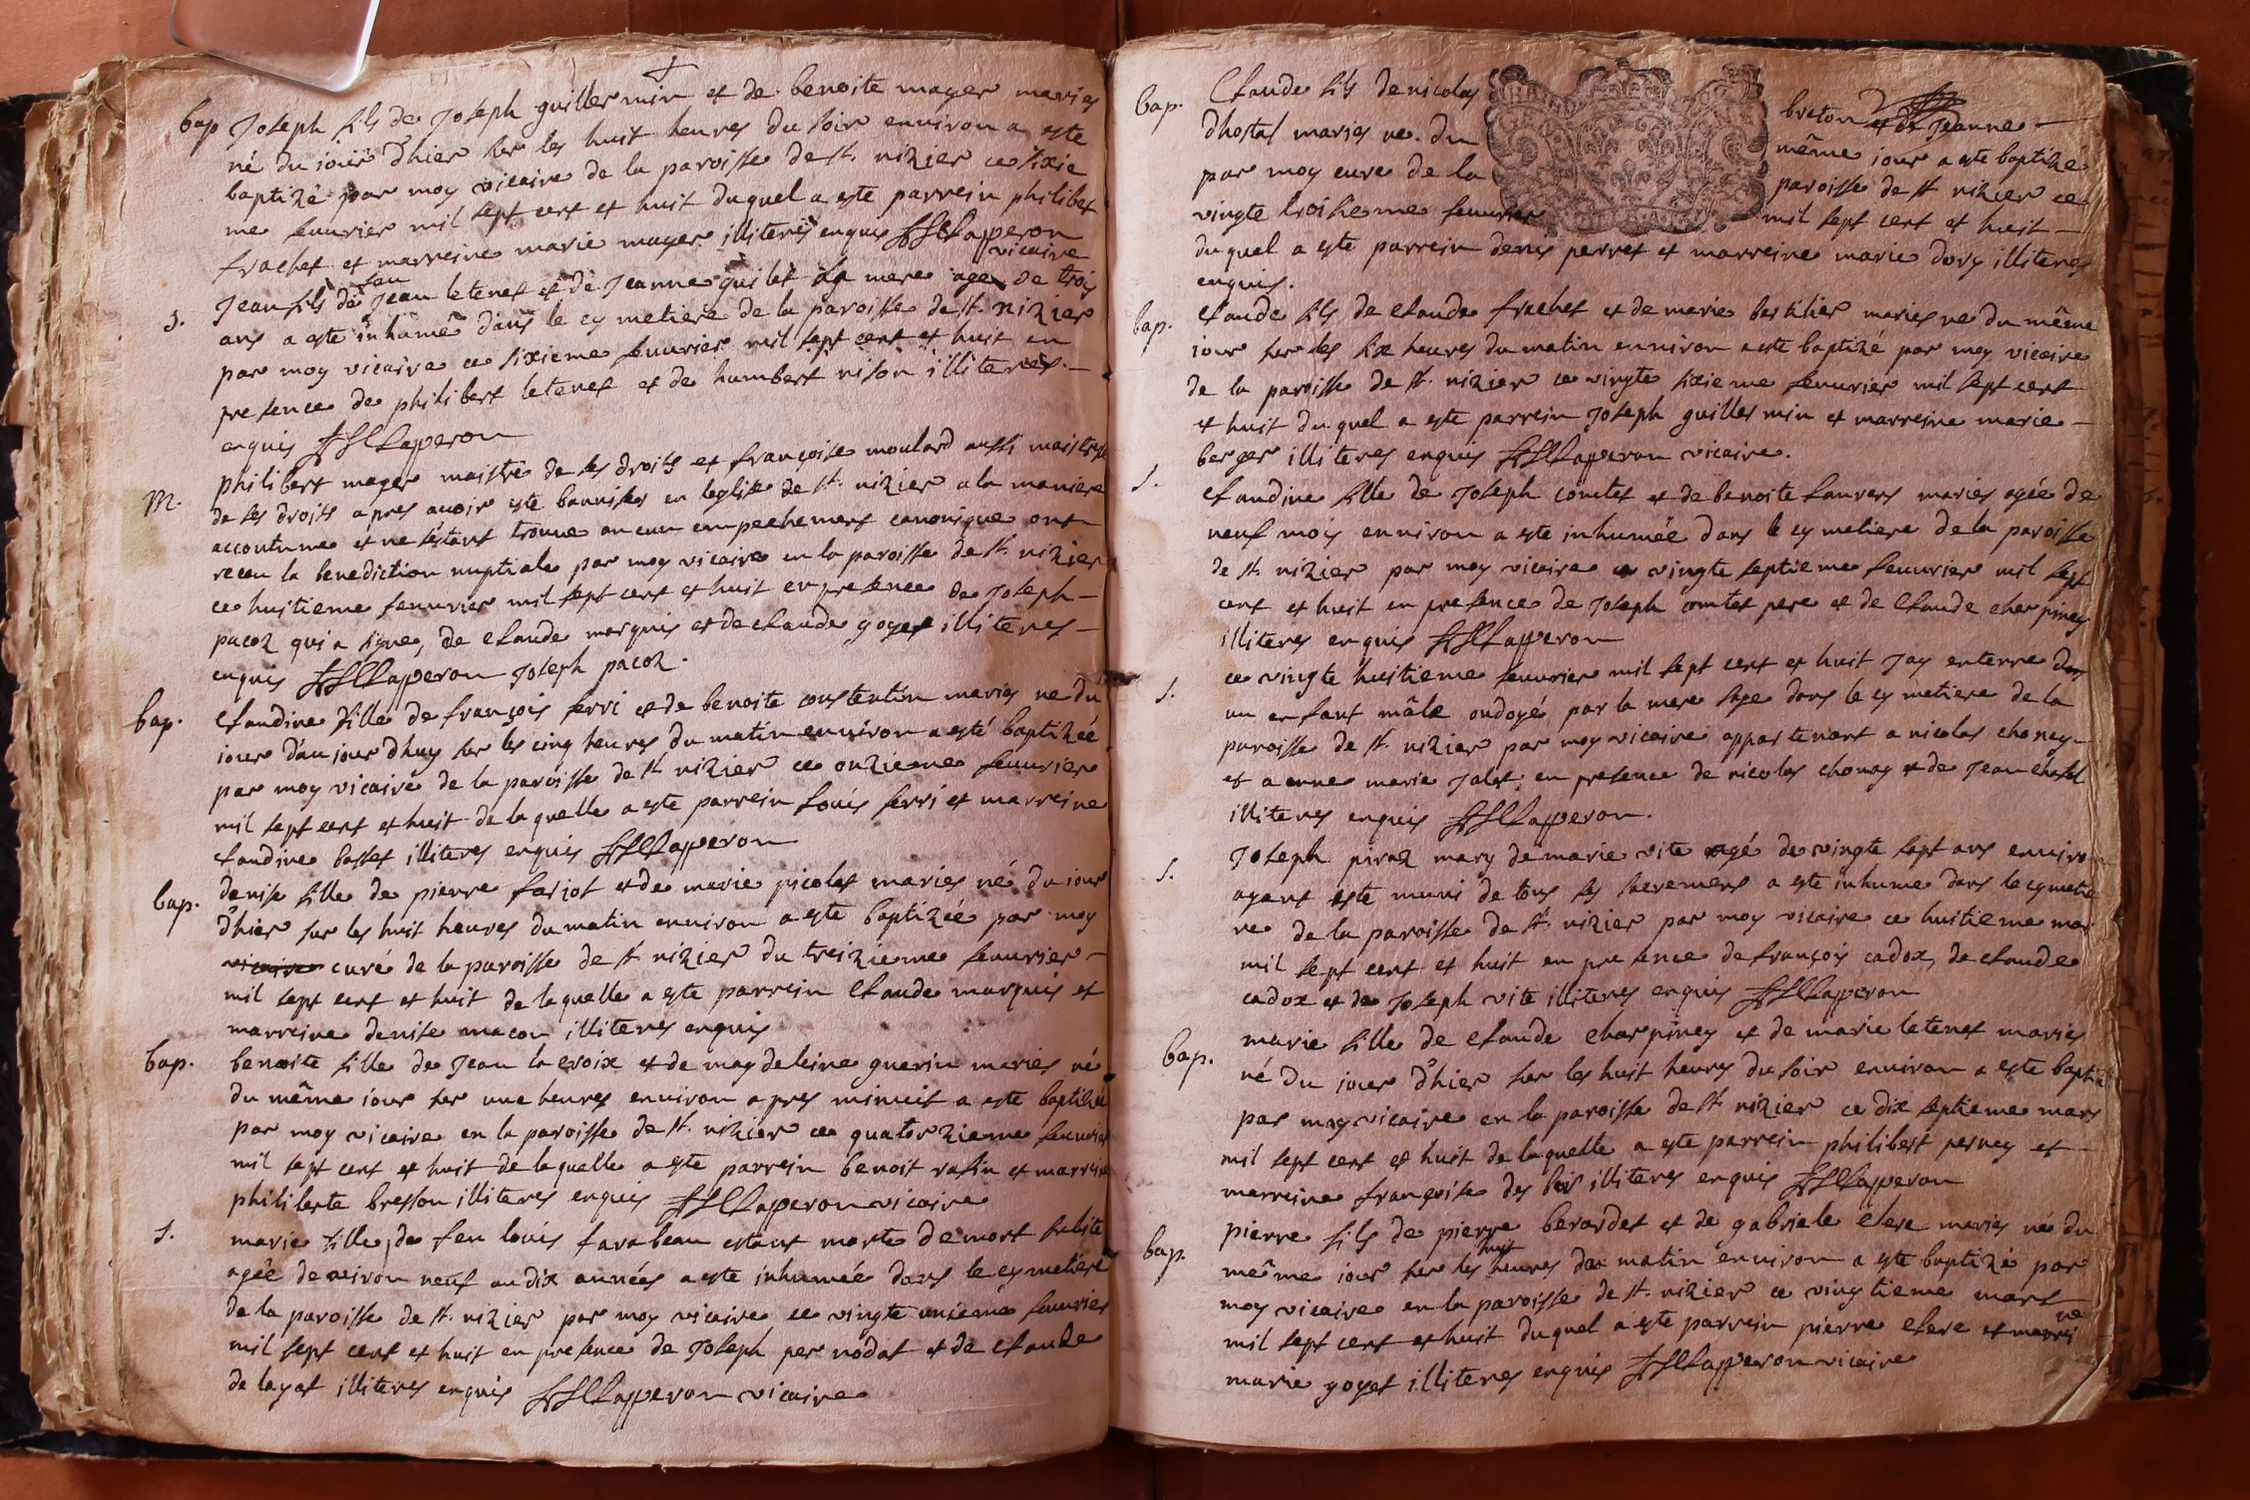 bap Joseph fils de Joseph guillermin et de benoite mayer mariés
né du iour d'hier sur les huit heures du soir environ a este
baptizé par moy vicaire de la paroisse de st. nizier ce sixie
me feuurier mil sept cent et huit duquel a este parrein philibet
frachet et marreine marie mayer illiteres enquis Clapperon
vicaire
s. Jean fils de feu Jean letenet et de Jeanne quilet sa mere age de trois
ans a este inhumé dans le cymetiere de la paroisse de st. nizier
par moy vicaire ce sixieme feuurier mil sept cent et huit en
presence de philibert letenet et de humbert nison illiteres.
enquis Clapperon
M. philibert mayer maistre de ses droits et françoise moulard aussi maistresse
de ses droits apres auoir este bannises en leglise de st. nizier a la maniere
accoutume et ne s'estant trouue aucun empechement canonique ont
receu la benediction nuptiale par moy vicaire en la paroisse de st. nizier
ce huitieme feuurier mil sept cent et huit en presence de Joseph
pacoz qui a signe, de claude marquis et de claude goyet illiteres
enquis Clapperon Joseph pacoz.
bap. claudine fille de françois ferri et de benoite constentin mariés ne du
iour d'aujourd'huy sur les cinq heures du matin environ a esté baptizée
par moy vicaire de la paroisse de st nizier ce onzieme feuurier
mil sept cent et huit de laquelle a este parrein louis ferri et marreine
claudine basset illiteres enquis Clapperon
bap. denise fille de pierre farjot et de marie picolet mariés né du iour
d'hier sur les huit heures du matin environ a este baptizée par moy
vicaire curé de la paroisse de st nizier du treizieme feuurier
mil sept cent et huit de laquelle a este parrein claude marquis et
marreine denise macon illiteres enquis
bap. benoite fille de Jean la croix et de magdeleine guerin mariés né
du même iour sur une heures environ apres minuit a este baptizée
par moy vicaire en la paroisse de st. nizier ce quatorzieme feuurier
mil sept cent et huit de laquelle a este parrein benoit rasin et marreine
philiberte bresson illiteres enquis Clapperon vicaire
s. marie fille de feu louis farabeau estant morte de mort subite
agée de environ neuf ou dix années a este inhumée dans le cymetiere
de la paroisse de st. nizier par moy vicaire ce vingte unieme feuurier
mil sept cent et huit en presence de Joseph pernodat et de claude
de layat illiteres enquis Clapperon vicaire
bap. Claude fils de nicolas breton et de Jeanne
dhostal mariés ne. du même iour a este baptizé
par moy cure de la paroisse de st nizier ce
vingte troisieme feuurier mil sept cent et huit
duquel a este parrein denys perret et marreine marie dory illiteres
enquis.
bap. claude fils de claude frachet et de marie bestilier mariés ne du même
iour sur les six heures du matin environ a este baptizé par moy vicaire
de la paroisse de st. nizier ce vingte sixieme feuurier mil sept cent
et huit duquel a este parrein Joseph guillermin et marreine marie
berger illiteres enquis Clapperon vicaire.
s. claudine fille de Joseph comtet et de benoite lanvers mariés agée de
neuf mois environ a este inhumée dans le cymetiere de la paroisse
de st. nizier par moy vicaire ce vingte septieme feuurier mil sept
cent et huit en presence de Joseph comtet pere et de claude charpiney
illiteres enquis Clapperon
s. ce vingte huitieme feuurier mil sept cent et huit Jay enterre dans
un enfant mâle ondoyé par la mere sage dans le cymetiere de la
paroisse de st. nizier par moy vicaire appartenant a nicolas chonay
et a anne marie Jalet en presence de nicolas chonay et de Jean chastel
illiteres enquis Clapperon.
s. Joseph piroz mary de marie vite agé de vingte sept ans environ
ayant este muni de tous ses sacremens a este inhume dans le cymetie
re de la paroisse de st. nizier par moy vicaire ce huitieme mars
mil sept cent et huit en presence de françois cadox, de claude
cadox et de Joseph vite illiteres enquis Clapperon
bap. marie fille de claude charpiney et de marie letenet mariés
né du iour d'hier sur les huit heures du soir environ a este baptizé
par moy vicaire en la paroisse de st. nizier ce dix septieme mars
mil sept cent et huit de laquelle a este parrein philibert perney et
marreine françoise des bois illiteres enquis Clapperon
bap. pierre fils de pierre berardet et de gabriele clere mariés né du
même iour sur les huit heures du matin environ a este baptizé par
moy vicaire en la paroisse de st. nizier ce vingtieme mars
mil sept cent et huit duquel a este parrein pierre clere et marreine
marie goyet illiteres enquis Clapperon vicaire